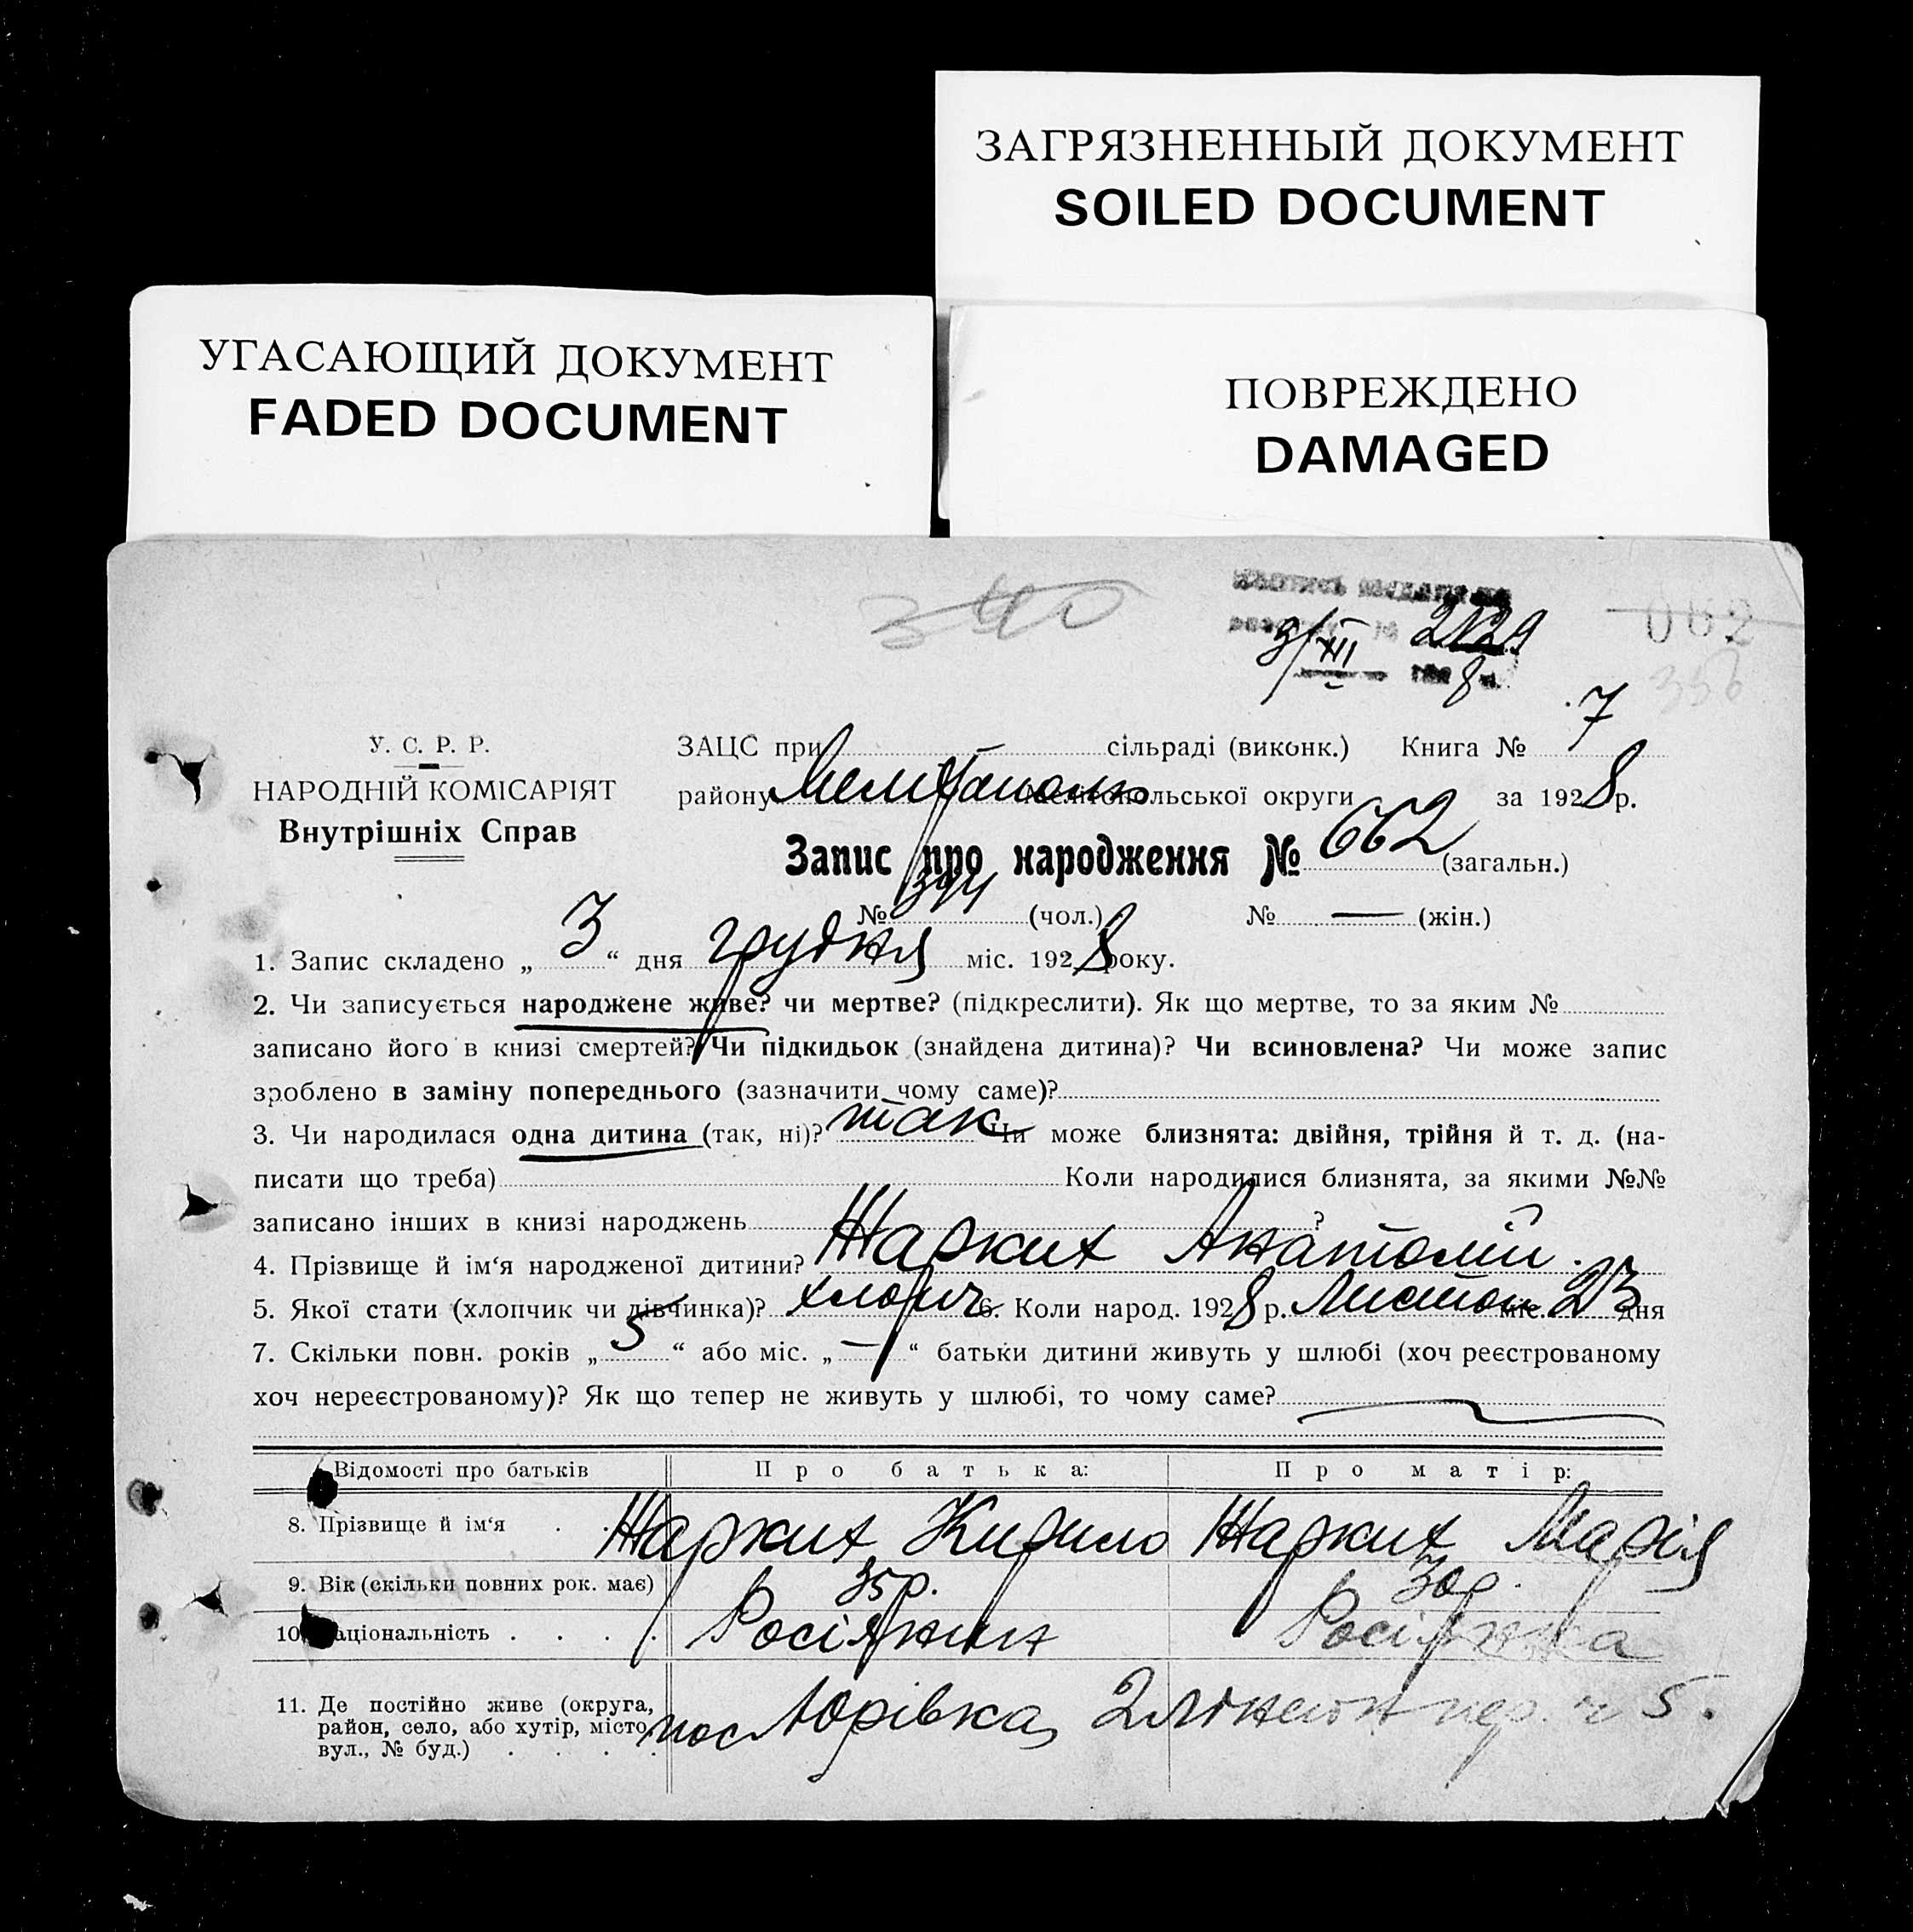 ЗАГРЯЗНЕННЫЙ ДОКУМЕНТ
SOILED DOCUMENT
УГАСАЮЩИЙ ДОКУМЕНТ
FADED DOCUMENT
ПОВРЕЖДЕНО
DAMAGED
340
9/XII 2129
8
062
356
У. С. Р. Р.
НАРОДНІЙ КОМІСАРІЯТ
Внутрішніх Справ
ЗАЦС при — сільраді (виконк.) Книга № 7
району Мелітополь Мелітопольської округи за 1928 р.
Запис про народження № 662 (загальн.)
№ 394 (чол.) № — (жін.)
1. Запис складено „ 3 “ дня грудня міс. 1928 року.
2. Чи записується народжене живе? чи мертве? (підкреслити). Як що мертве, то за яким №
записано його в книзі смертей? Чи підкидьок (знайдена дитина)? Чи всиновлена? Чи може запис
зроблено в заміну попереднього (зазначити чому саме)?
3. Чи народилася одна дитина (так, ні)? так Чи може близнята: двійня, трійня й т. д. (на-
писати що треба) Коли народилися близнята, за якими №№
записано інших в книзі народжень ?
4. Прізвище й ім‘я народженої дитини? Жарких Анатолій.
5. Якої стати (хлопчик чи дівчинка)? хлопч 6. Коли народ. 1928 р. Листоп міс. 23 дня
7. Скільки повн. років „ 5 “ або міс. „ — “ батьки дитини живуть у шлюбі (хоч реєстрованому
хоч нереєстрованому)? Як що тепер не живуть у шлюбі, то чому саме?
Відомості про батьків Про батька: Про матір:
8. Прізвище й ім‘я Жарких Кирило Жарких Марія
9. Вік (скільки повних рок. має) 35 р. 30 р.
10. Національність Росіянин Росіянка
11. Де постійно живе (округа,
район, село, або хутір, місто,
вул., № буд.)
пос Юрівка, 2 лінейн пер. ч 5.